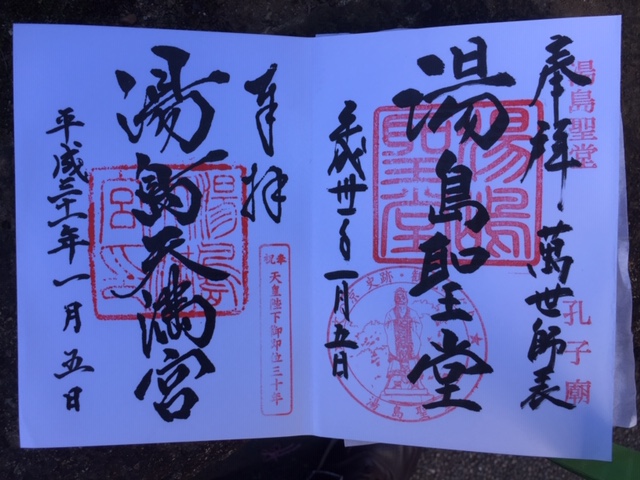 湯島聖堂
孔子廟
奉拝
萬世師表
湯島聖堂
湯島聖堂
平成卅一年一月五日
奉拝
奉祝 天皇陛下御即位三十年
湯島天満宮
平成三十一年一月五日